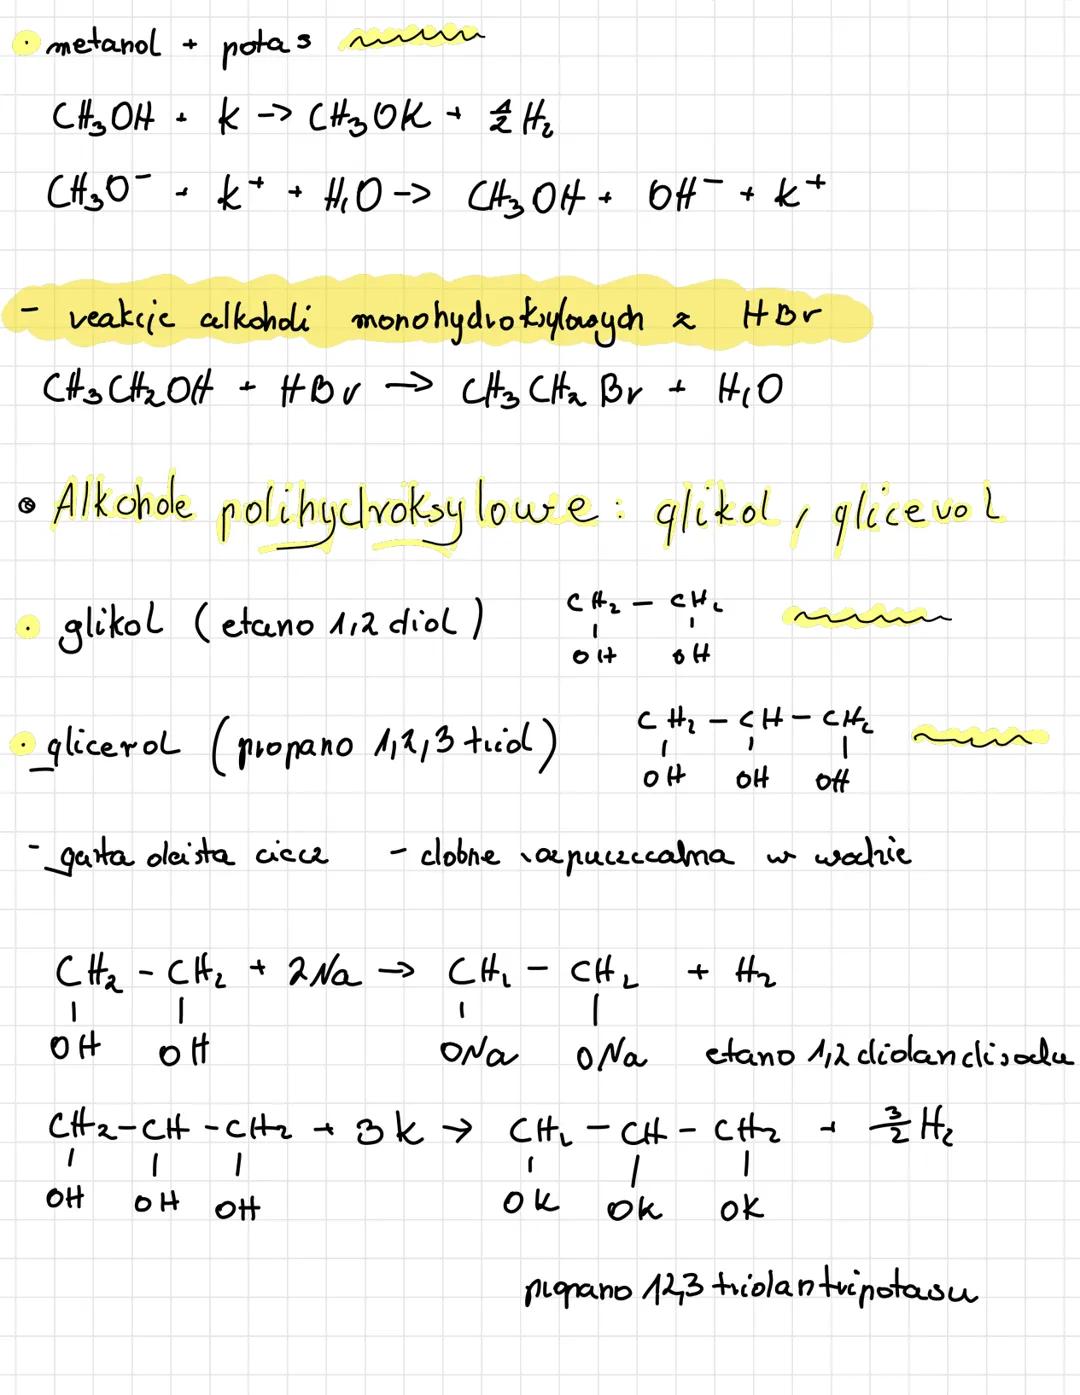 • metanol + potas
CH₃OH + K -> CH₃OK + ½ H₂
CH₃O⁻ + K⁺ + H₂O -> CH₃OH + OH⁻ + K⁺
- reakcje alkoholi monohydroksylowych z HBr
CH₃CH₂OH + HBr -> CH₃CH₂Br + H₂O
• Alkohole polihydroksylowe: glikol, glicerol
• glikol (etano 1,2 diol) CH₂ - CH₂
OH OH
• glicerol (propano 1,2,3 triol) CH₂ - CH - CH₂
OH OH OH
- gęsta oleista ciecz - dobrze rozpuszczalna w wodzie
CH₂ - CH₂ + 2Na -> CH₂ - CH₂ + H₂
OH OH ONa ONa etano 1,2 diolan disodu
CH₂-CH-CH₂ + 3K -> CH₂ - CH - CH₂ + 3/2 H₂
OH OH OH OK OK OK
propano 1,2,3 triolan tripotasu